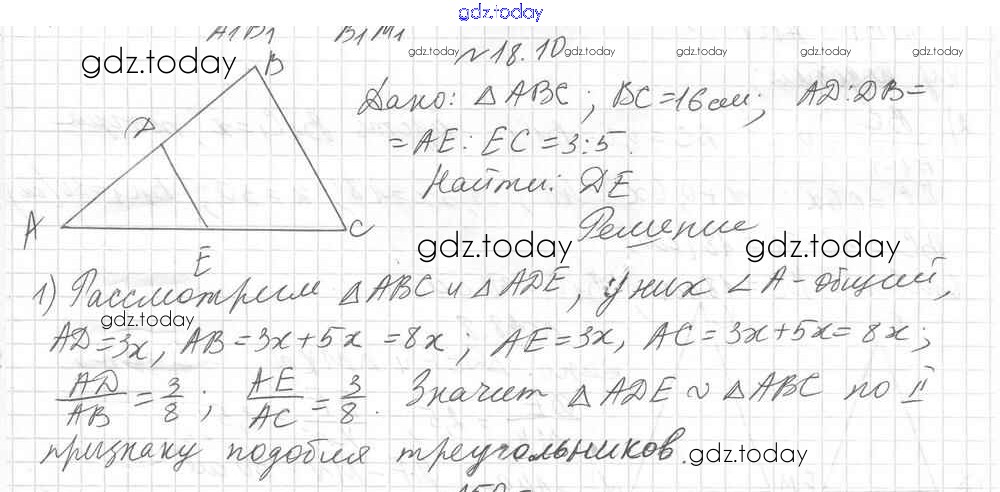 gdz.today
A1B1 B1M1
N 18.10
gdz.today gdz.today gdz.today gdz.today gdz.today
B
Дано: △ ABC ; BC = 16 см; AD:DB=
D
= AE : EC = 3:5.
Найти: DE
A C
E
Решение
gdz.today gdz.today
1) Рассмотрим △ ABC и △ ADE, у них ∠ A - общий,
gdz.today
AD = 3x, AB = 3x + 5x = 8x ; AE = 3x, AC = 3x + 5x = 8x ;
AD/AB = 3/8 ; AE/AC = 3/8 . Значит △ ADE ∾ △ ABC по II
признаку подобия треугольников.
gdz.today